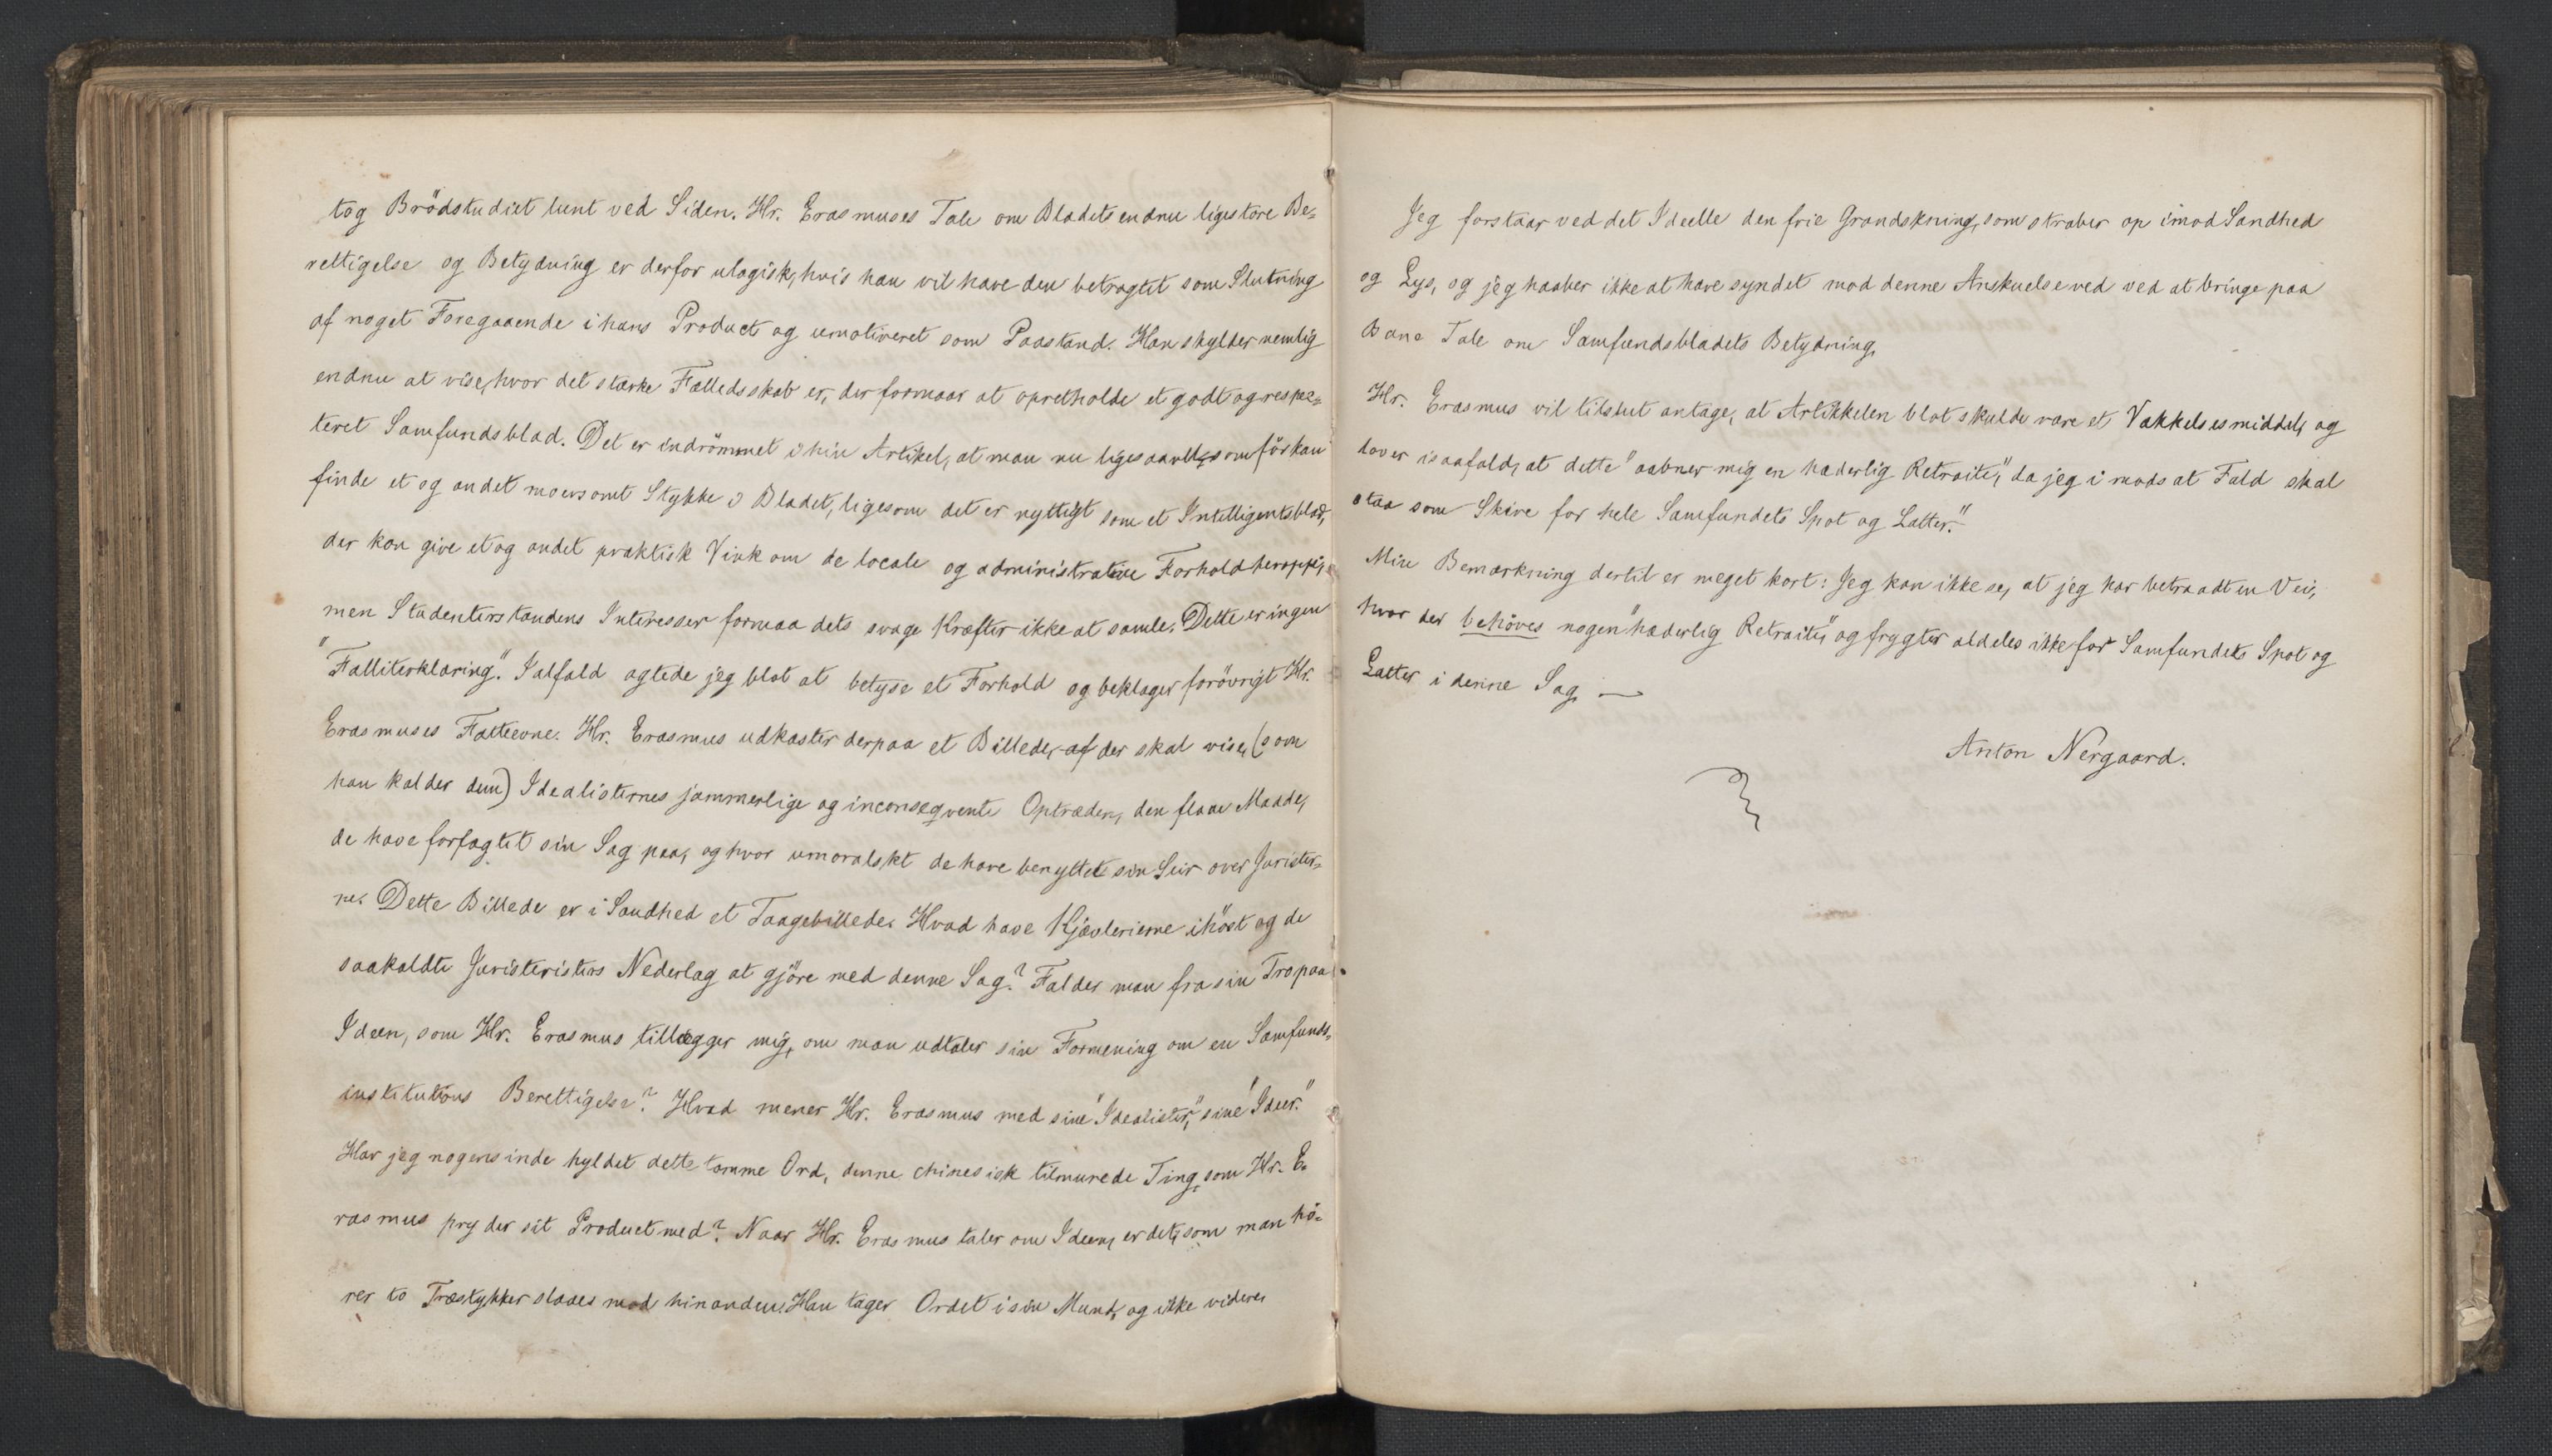 tog Brödstudiet lunt ved Siden. Hr. Erasmuses Tale om Bladets endnu ligestore Be-
rettigelse og Betydning er derfor ulogisk, hvis han vil have den betragtet som Slutning
af noget Foregaaende i hans Product og umotiveret som Paastand. Han skylder nemlig
endnu at vise, hvor det stærke Fælledsskab er, der formaar at opretholde et godt og respec-
teret Samfundsblad. Det er indrömmet i hin Artikel, at man nu ligesaavel, som för kan
finde et og andet moersomt Stykke i Bladet, ligesom det er nyttigt som et Intelligentsblad,
der kan give et og andet praktisk Vink om de locale og administrative Forhold heroppe,
men Studenterstandens Interesser formaa dets svage Kræfter ikke at samle. Dette er ingen
"Falliterklæring". Ialfald agtede jeg blot at betyde et Forhold og beklager forövrigt Hr.
Erasmuses Fatteevne. Hr. Erasmus udkaster derpaa et Billede, af der skal vise, (som
han kalder dem) Idealisternes jammerlige og inconseqvente Optræden, den flaue Maade,
de have forfægtet sin Sag paa, og hvor umoralskt de have benyttet sin Seir over Jurister-
ne. Dette Billede er i Sandhed et Taagebillede. Hvad have Kjævlerierne ihöst og de
saakaldte Juristeristers Nederlag at gjöre med denne Sag? Falder man fra sin Tro paa
Ideen, som Hr. Erasmus tillægger mig, om man udtaler sin Formening om en Samfunds-
institutions Berettigelse? Hvad mener Hr. Erasmus med sine "Idealister," sine "Ideer."
Har jeg nogensinde hyldet dette tomme Ord, denne chinesisk tilmurede Ting, som Hr. E-
rasmus pryder sit Product med? Naar Hr. Erasmus taler om Ideen, er det, som man hö-
rer to Træstykker slaaes mod hinanden. Han tager Ordet i sin Mund, og ikke videre.
Jeg forstaar ved det Ideelle den frie Grandskning, som stræber op imod Sandhed
og Lys, og jeg haaber ikke at have syndet mod denne Anskuelse ved ved at bringe paa
Bane Tale om Samfundsbladets Betydning.
Hr. Erasmus vil tilslut antage, at Artikkelen blot skulde være et Vækkelsesmiddel, og
lover isaafald, at dette "aabner mig en hæderlig Retraite," da jeg i modsat Fald skal
staa som Skive for hele Samfundets Spot og Latter."
Min Bemærkning dertil er meget kort: Jeg kan ikke se, at jeg har betraadt en Vei,
hvor der behöves nogen "hæderlig Retraite," og frygter aldeles ikke for Samfundets Spot og
Latter i denne Sag. —
Anton Nergaard.